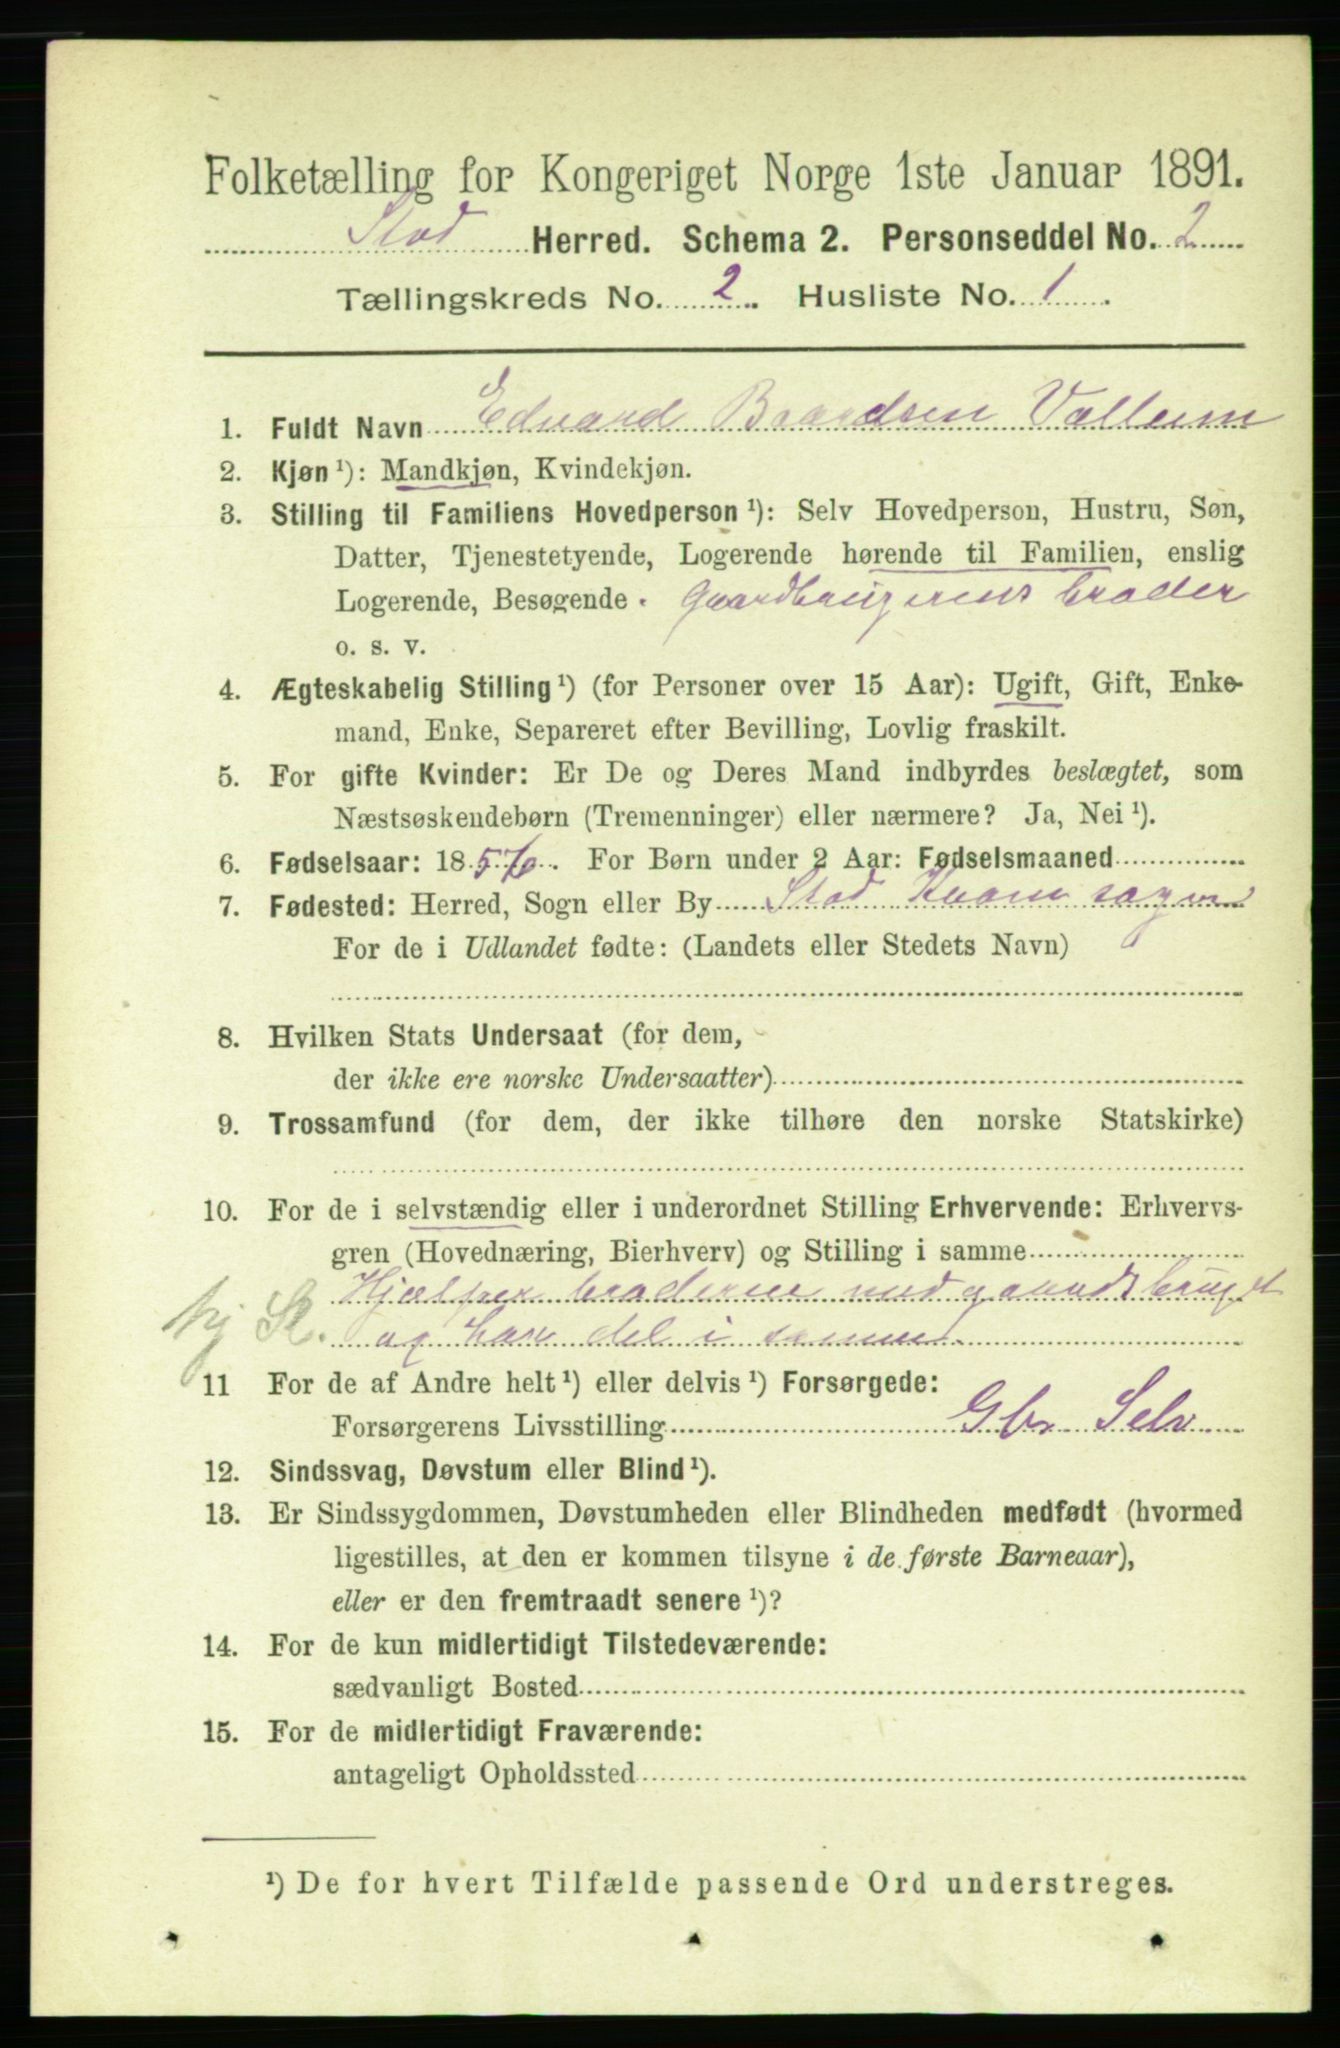 Folketælling for Kongeriget Norge 1ste Januar 1891.
Stod Herred. Schema 2. Personseddel No. 2
Tællingskreds No. 2. Husliste No. 1.
1. Fuldt Navn Edvard Baardsen Vollum
2. Kjøn ¹): Mandkjøn, Kvindekjøn.
3. Stilling til Familiens Hovedperson ¹): Selv Hovedperson, Hustru, Søn,
Datter, Tjenestetyende, Logerende hørende til Familien, enslig
Logerende, Besøgende. Gaardbrugerens broder
o. s. v.
4. Ægteskabelig Stilling ¹) (for Personer over 15 Aar): Ugift, Gift, Enke-
mand, Enke, Separeret efter Bevilling, Lovlig fraskilt.
5. For gifte Kvinder: Er De og Deres Mand indbyrdes beslægtet, som
Næstsøskendebørn (Tremenninger) eller nærmere? Ja, Nei ¹).
6. Fødselsaar: 1856. For Børn under 2 Aar: Fødselsmaaned
7. Fødested: Herred, Sogn eller By Stod Kvam sogn
For de i Udlandet fødte: (Landets eller Stedets Navn)
8. Hvilken Stats Undersaat (for dem,
der ikke ere norske Undersaatter)
9. Trossamfund (for dem, der ikke tilhøre den norske Statskirke)
10. For de i selvstændig eller i underordnet Stilling Erhvervende: Erhvervs-
gren (Hovednæring, Bierhverv) og Stilling i samme
Hjælper broderen med gaardsbruget
hj og har del i samme.
11 For de af Andre helt ¹) eller delvis ¹) Forsørgede:
Forsørgerens Livsstilling Gbr Selv
12. Sindssvag, Døvstum eller Blind ¹).
13. Er Sindssygdommen, Døvstumheden eller Blindheden medfødt (hvormed
ligestilles, at den er kommen tilsyne i de første Barneaar),
eller er den fremtraadt senere ¹)?
14. For de kun midlertidigt Tilstedeværende:
sædvanligt Bosted
15. For de midlertidigt Fraværende:
antageligt Opholdssted
¹) De for hvert Tilfælde passende Ord understreges.